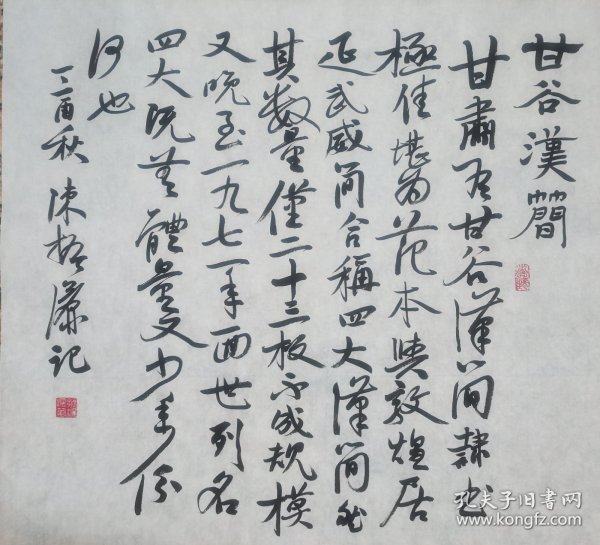 甘谷漢簡
甘肅有甘谷漢簡隸书
極佳堪为范本與敦煌居
延武威简合稱四大漢简然
其数量僅二十三枚不成规模
又晚至一九七一年面世列名
四大阮 體量又少素
何也
丁酉秋 陳 濂记
孔夫子旧书网
www.kongfz.com